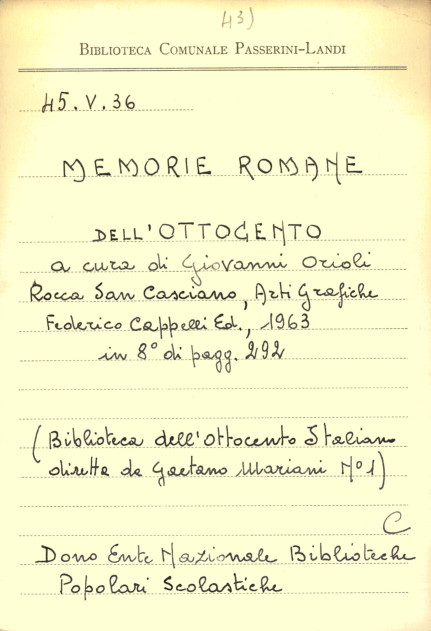 43)
BIBLIOTECA COMUNALE PASSERINI-LANDI
45.V.36
MEMORIE ROMANE
DELL'OTTOCENTO
a cura di Giovanni Orioli
Rocca San Casciano, Arti Grafiche
Federico Cappelli Ed., 1963
in 8° di pagg. 292
(Biblioteca dell'Ottocento Italiano
diretta da Gaetano Mariani N° 1)
C
Dono Ente Nazionale Biblioteche
Popolari Scolastiche